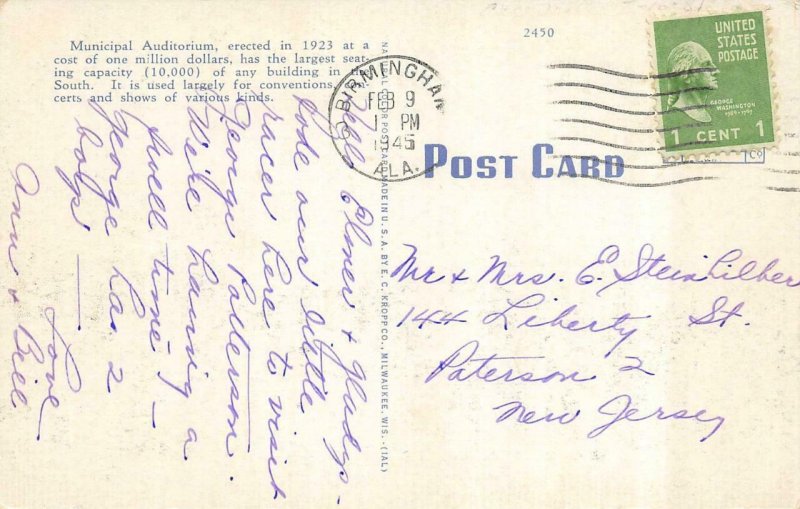 Municipal Auditorium, erected in 1923 at a
cost of one million dollars, has the largest seat-
ing capacity (10,000) of any building in the
South. It is used largely for conventions, con-
certs and shows of various kinds.
2450
BIRMINGHAM
FEB 9
1 PM
1945
ALA.
UNITED
STATES
POSTAGE
GEORGE
WASHINGTON
1789-1797
1 CENT 1
POST CARD
Hello Elmer & Gladys -
Rode our little
racer here to visit
George Patterson.
We're having a
swell time -
George has 2
boys -
Love
Ann & Bill
MADE IN U.S.A. BY E. C. KROPP CO., MILWAUKEE, WIS.-(IAL)
Mr & Mrs. E. Steinhilber
144 Liberty St.
Paterson 2
New Jersey